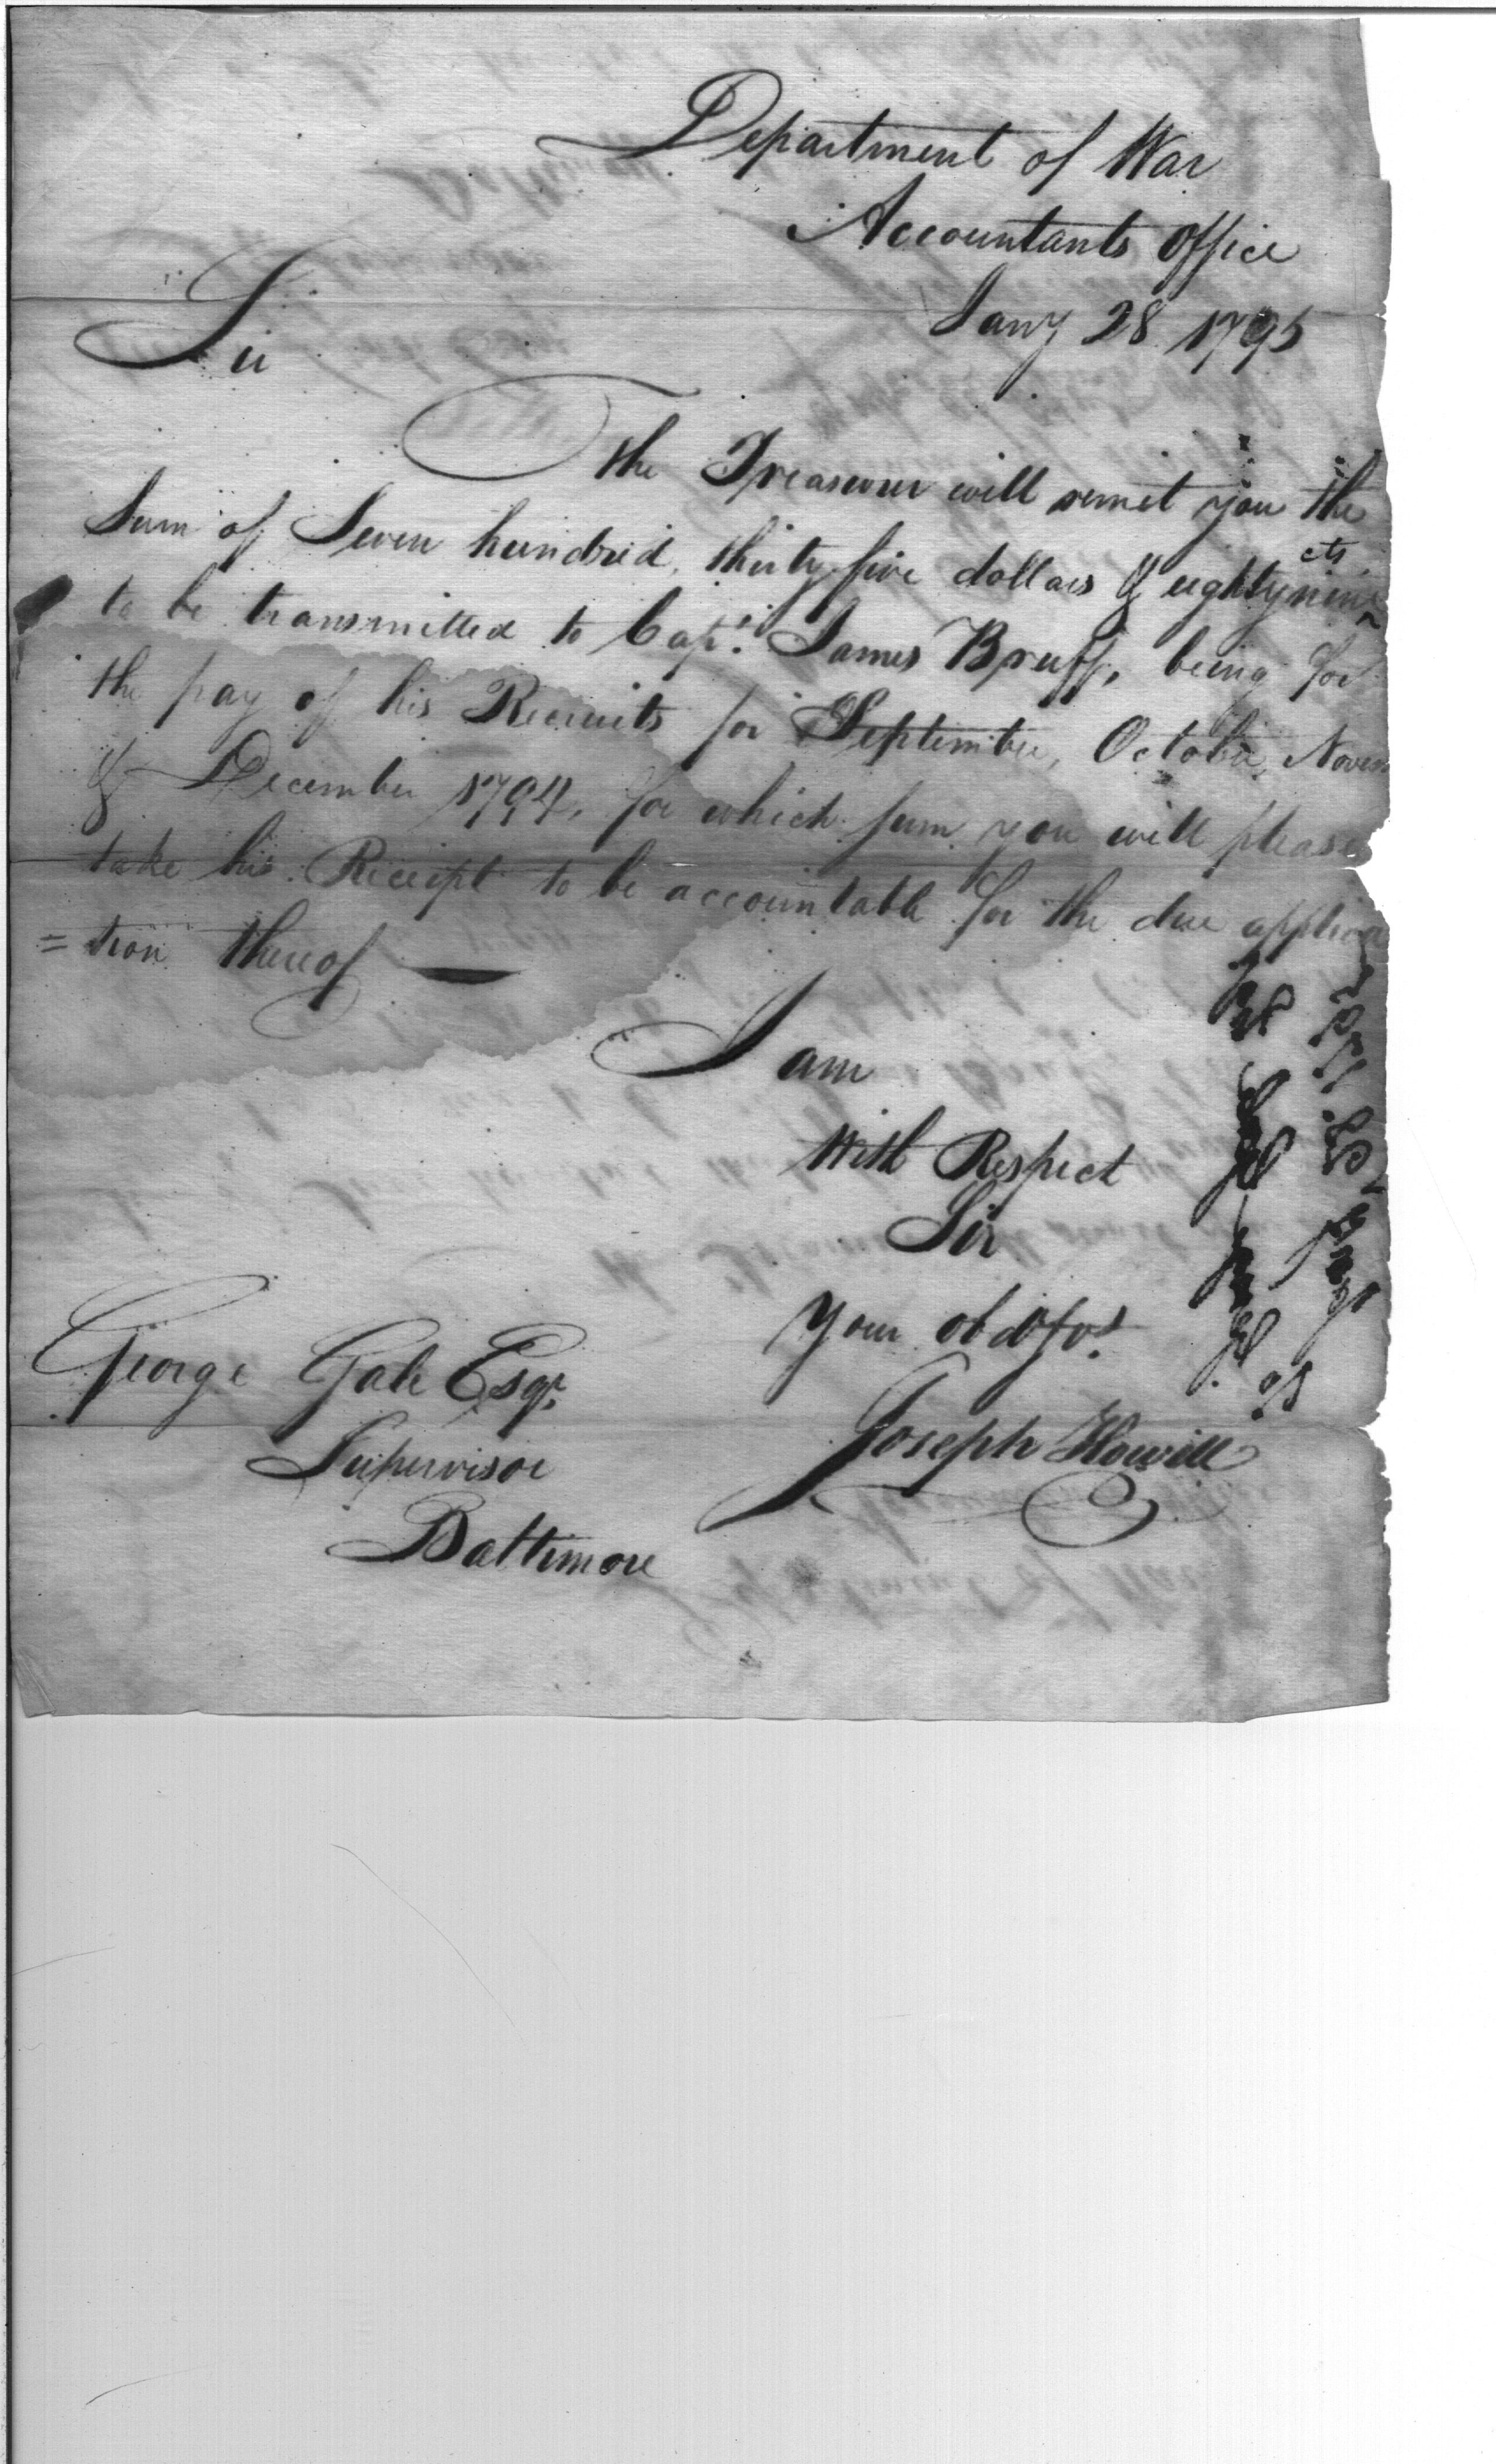 Department of War
Accountants Office
Jany 28 1795
Sir
The Treasurer will remit you the
Sum of Seven hundred, thirty five dollars & eighty nine cts
to be transmitted to Capt. James Bruff, being for
the pay of his Recruits for September, October, Novem
& December 1794, for which sum you will please
take his Receipt to be accountable for the due applica
=tion thereof —
I am
With Respect
Sir
Your obd Svt.
Joseph Howell
George Gale Esqr.
Supervisor
Baltimore